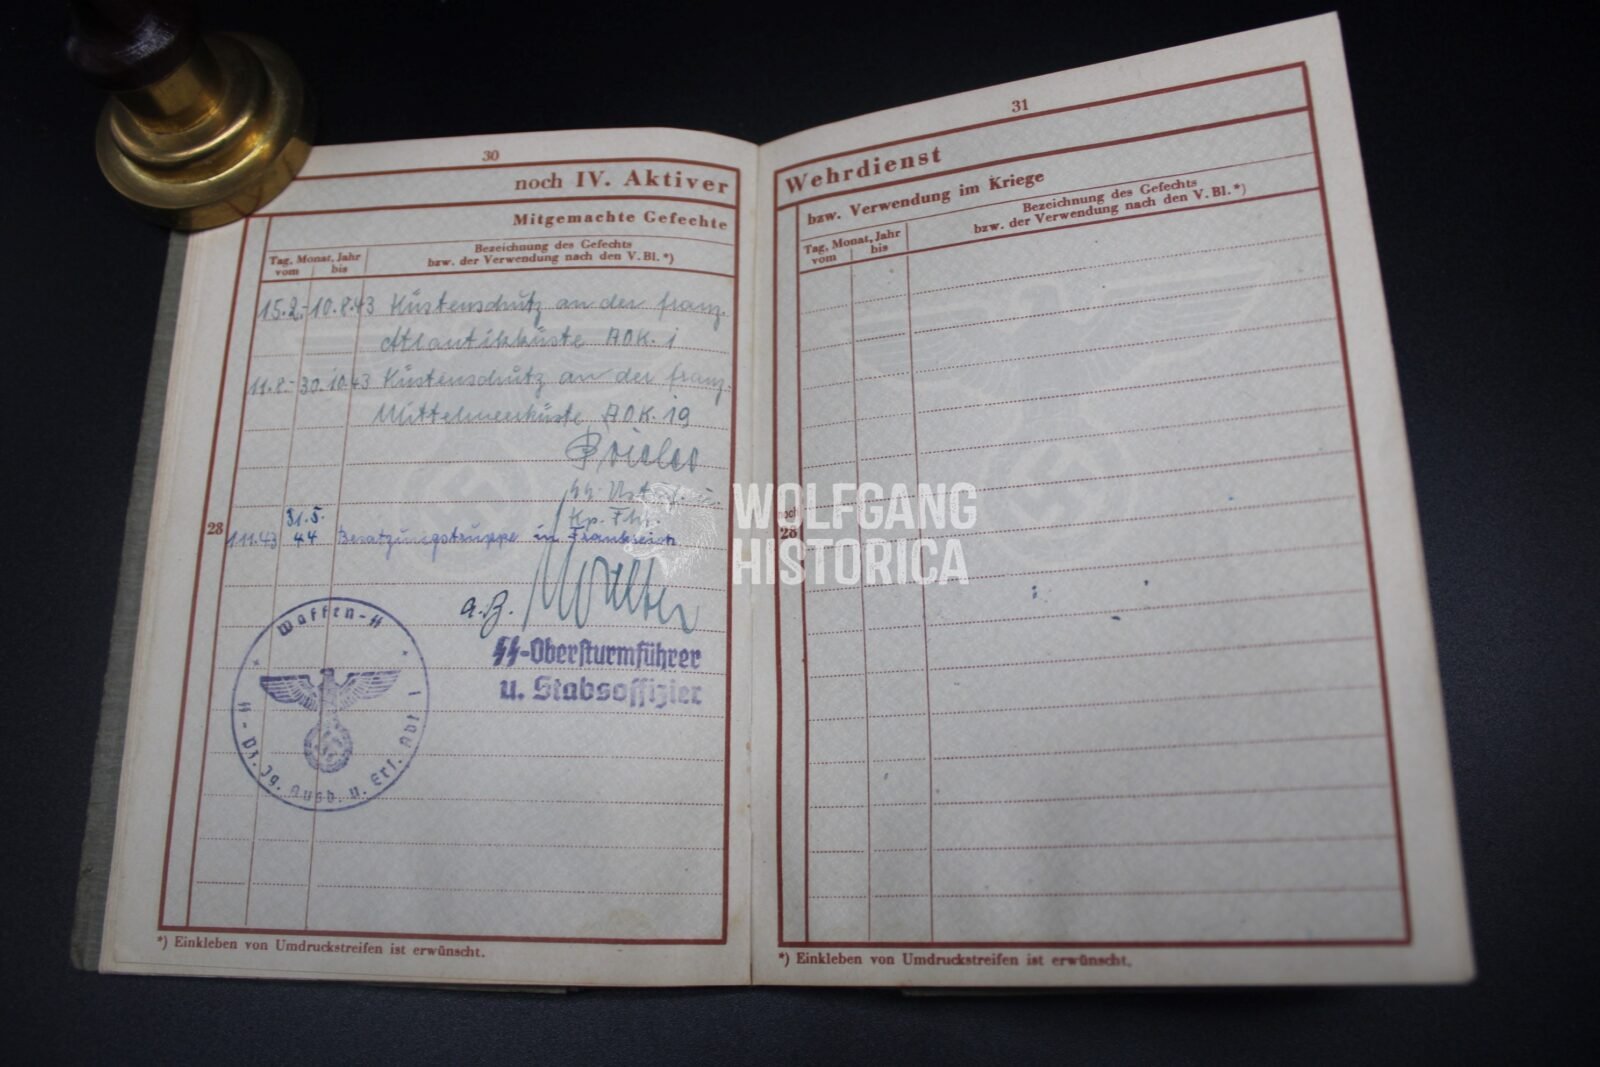 30
noch IV. Aktiver
Mitgemachte Gefechte
Tag, Monat, Jahr
vom bis
Bezeichnung des Gefechts
bzw. der Verwendung nach den V. Bl. *)
15.2.-10.8.43 Küstenschutz an der franz.
Atlantikküste AOK. 1
11.8.-30.10.43 Küstenschutz an der franz.
Mittelmeerküste AOK. 19
Kp. Fhr.
28
1.11.43 31.5.44 Besatzungstruppe in Frankreich
SS-Obersturmführer
u. Stabsoffizier
Waffen-SS
SS-Pz. Jg. Ausb. u. Ers. Abt 1
*) Einkleben von Umdruckstreifen ist erwünscht.
31
Wehrdienst
bzw. Verwendung im Kriege
Tag, Monat, Jahr
vom bis
Bezeichnung des Gefechts
bzw. der Verwendung nach den V. Bl. *)
noch
28
*) Einkleben von Umdruckstreifen ist erwünscht.
WOLFGANG
HISTORICA